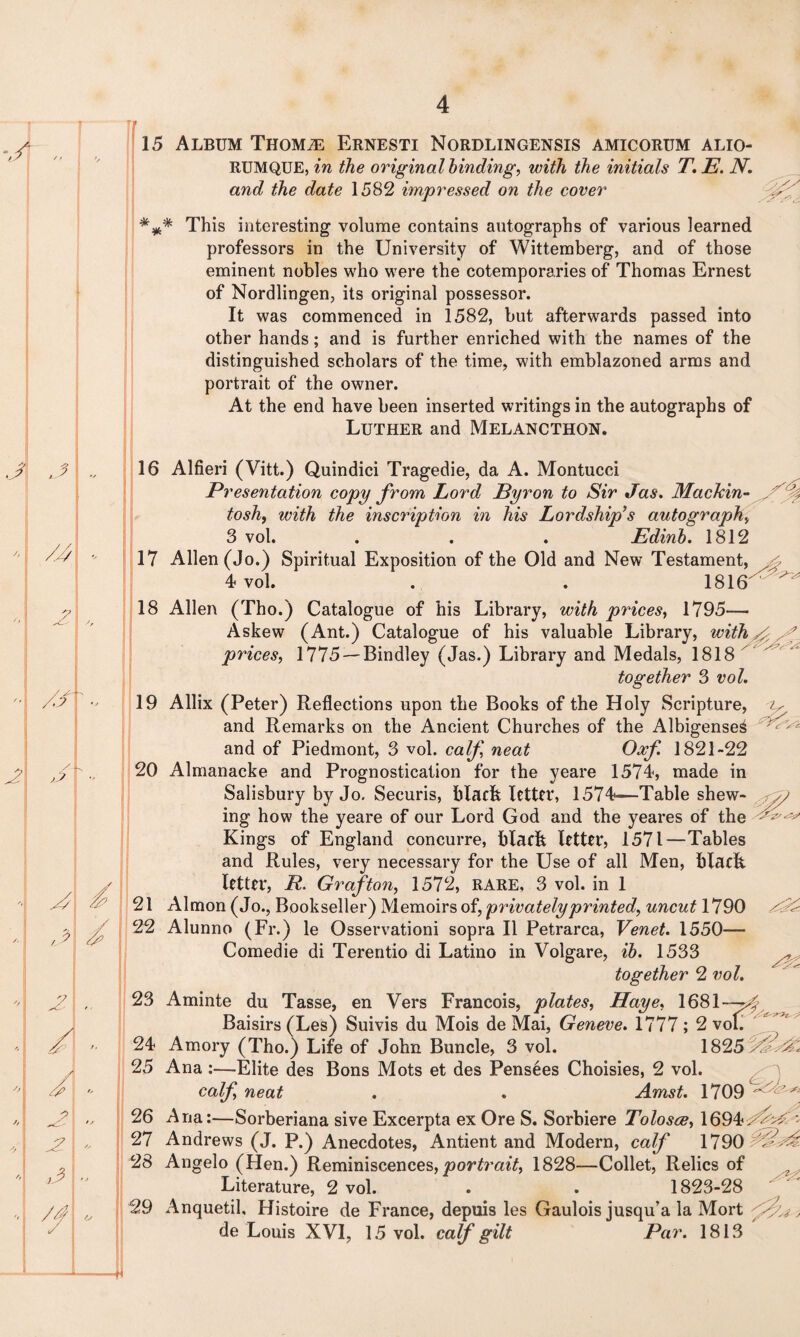 4
15 ALBUM THOMÆ ERNESTI NORDLINGENSIS AMICORUM ALIO-
RUMQUE, in the original binding, with the initials T. E. N.
and the date 1582 impressed on the cover
*** This interesting volume contains autographs of various learned
professors in the University of Wittemberg, and of those
eminent nobles who were the cotemporaries of Thomas Ernest
of Nordlingen, its original possessor.
It was commenced in 1582, but afterwards passed into
other hands; and is further enriched with the names of the
distinguished scholars of the time, with emblazoned arms and
portrait of the owner.
At the end have been inserted writings in the autographs of
LUTHER and MELANCTHON.
16 Alfieri (Vitt.) Quindici Tragedie, da A. Montucci
Presentation copy from Lord Byron to Sir Jas. Mackin-
tosh, with the inscription in his Lordship's autograph,
3 vol. . . . Edinb. 1812
17 Allen (Jo.) Spiritual Exposition of the Old and New Testament,
4 vol. . . 1816
18 Allen (Tho.) Catalogue of his Library, with prices, 1795—
Askew (Ant.) Catalogue of his valuable Library, with
prices, 1775—Bindley (Jas.) Library and Medals, 1818
together 3 vol.
19 Allix (Peter) Reflections upon the Books of the Holy Scripture,
and Remarks on the Ancient Churches of the Albigenses
and of Piedmont, 3 vol. calf, neat Oxf. 1821-22
20 Almanacke and Prognostication for the yeare 1574, made in
Salisbury by Jo. Securis, black letter, 1574—Table shew-
ing how the yeare of our Lord God and the yeares of the
Kings of England concurre, black letter, 1571—Tables
and Rules, very necessary for the Use of all Men, black
letter, R. Grafton, 1572, RARE, 3 vol. in 1
21 Almon (Jo., Bookseller) Memoirs of, privately printed, uncut 1790
22 Alunno (Fr.) le Osservationi sopra Il Petrarca, Venet. 1550—
Comedie di Terentio di Latino in Volgare, ib. 1533
together 2 vol.
23 Aminte du Tasse, en Vers Francois, plates, Haye, 1681—
Baisirs (Les) Suivis du Mois de Mai, Geneve. 1777; 2 vol.
24 Amory (Tho.) Life of John Buncle, 3 vol. 1825
25 Ana:—Elite des Bons Mots et des Pensées Choisies, 2 vol.
calf, neat . . Amst. 1709
26 Ana:—Sorberiana sive Excerpta ex Ore S. Sorbiere Tolosæ, 1694
27 Andrews (J. P.) Anecdotes, Antient and Modern, calf 1790
28 Angelo (Hen.) Reminiscences, portrait, 1828—Collet, Relics of
Literature, 2 vol. . . 1823-28
29 Anquetil, Histoire de France, depuis les Gaulois jusqu'a la Mort
de Louis XVI, 15 vol. calf gilt Par. 1813